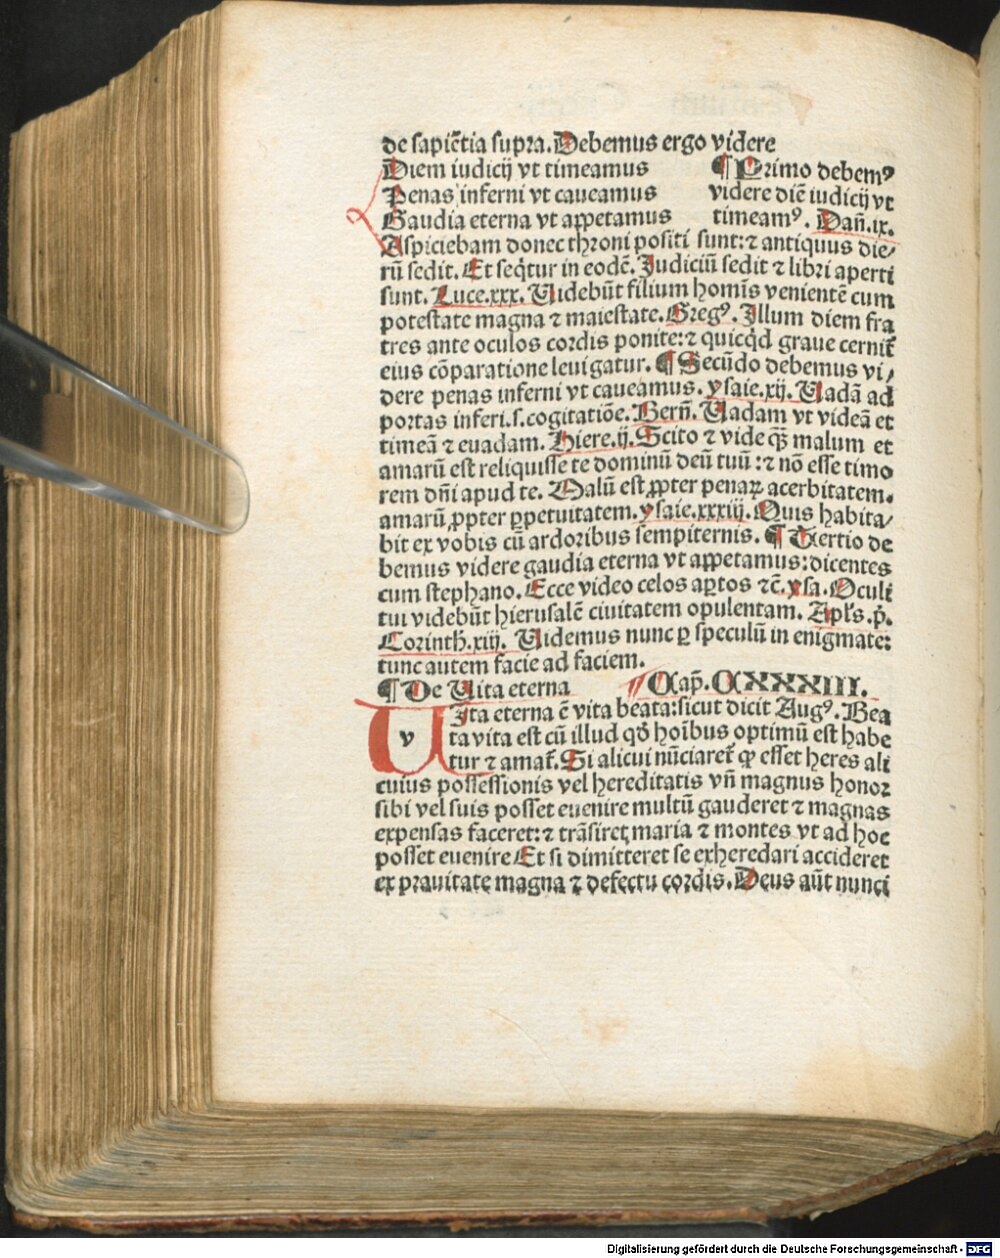 de sapiẽtia supra. Debemus ergo videre
Diem iudicij vt timeamus ¶ Primo debemꝰ
Penas inferni vt caueamus videre diẽ iudicij vt
Gaudia eterna vt appetamus timeamꝰ. Dañ.ix.
Aspiciebam donec throni positi sunt:⁊ antiquus die⸗
rũ sedit. Et seq̃tur in eodẽ. Judiciũ sedit ⁊ libri aperti
sunt. Luce.xxx. Uidebũt filium hominis venientẽ cum
potestate magna ⁊ maiestate. Gregꝰ. Illum diem fra
tres ante oculos cordis ponite:⁊ quicq̃d graue cernit̃
eius cõparatione leuigatur. ¶ Secũdo debemus vi⸗
dere penas inferni vt caueamus. ysaie.xij. Uadã ad
portas inferi.s.cogitatiõe. Berñ. Uadam vt videã et
timeã ⁊ euadam. Hiere.ij. Scito ⁊ vide qꝫ malum et
amarũ est reliquisse te dominũ deũ tuũ:⁊ nõ esse timo
rem dñi apud te. Malũ est ꝓpter penaꝝ acerbitatem.
amarũ ꝓpter ꝑpetuitatem. ysaie.xxxiij. Quis habita⸗
bit ex vobis cũ ardoribus sempiternis. ¶ Tertio de
bemus videre gaudia eterna vt appetamus:dicentes
cum stephano. Ecce video celos aꝑtos ⁊c̃. ysa. Oculi
tui videbũt hierusalẽ ciuitatem opulentam. Apl's.p̃.
Corinth.xiij. Uidemus nunc ꝑ speculũ in enigmate:
tunc autem facie ad faciem.
¶ De Uita eterna Cap. CXXXIII.
UIta eterna ẽ vita beata:sicut dicit Augꝰ. Bea
ta vita est cũ illud qd̃ hoĩbus optimũ est habe
tur ⁊ amat̃. Si alicui nũciaret̃ ꝙ esset heres ali
cuius possessionis vel hereditatis vñ magnus honor
sibi vel suis posset euenire multũ gauderet ⁊ magnas
expensas faceret:⁊ trãsiret maria ⁊ montes vt ad hoc
posset euenire Et si dimitteret se exheredari accideret
ex prauitate magna ⁊ defectu cordis. Deus aũt nunci
Digitalisierung gefördert durch die Deutsche Forschungsgemeinschaft - DFG